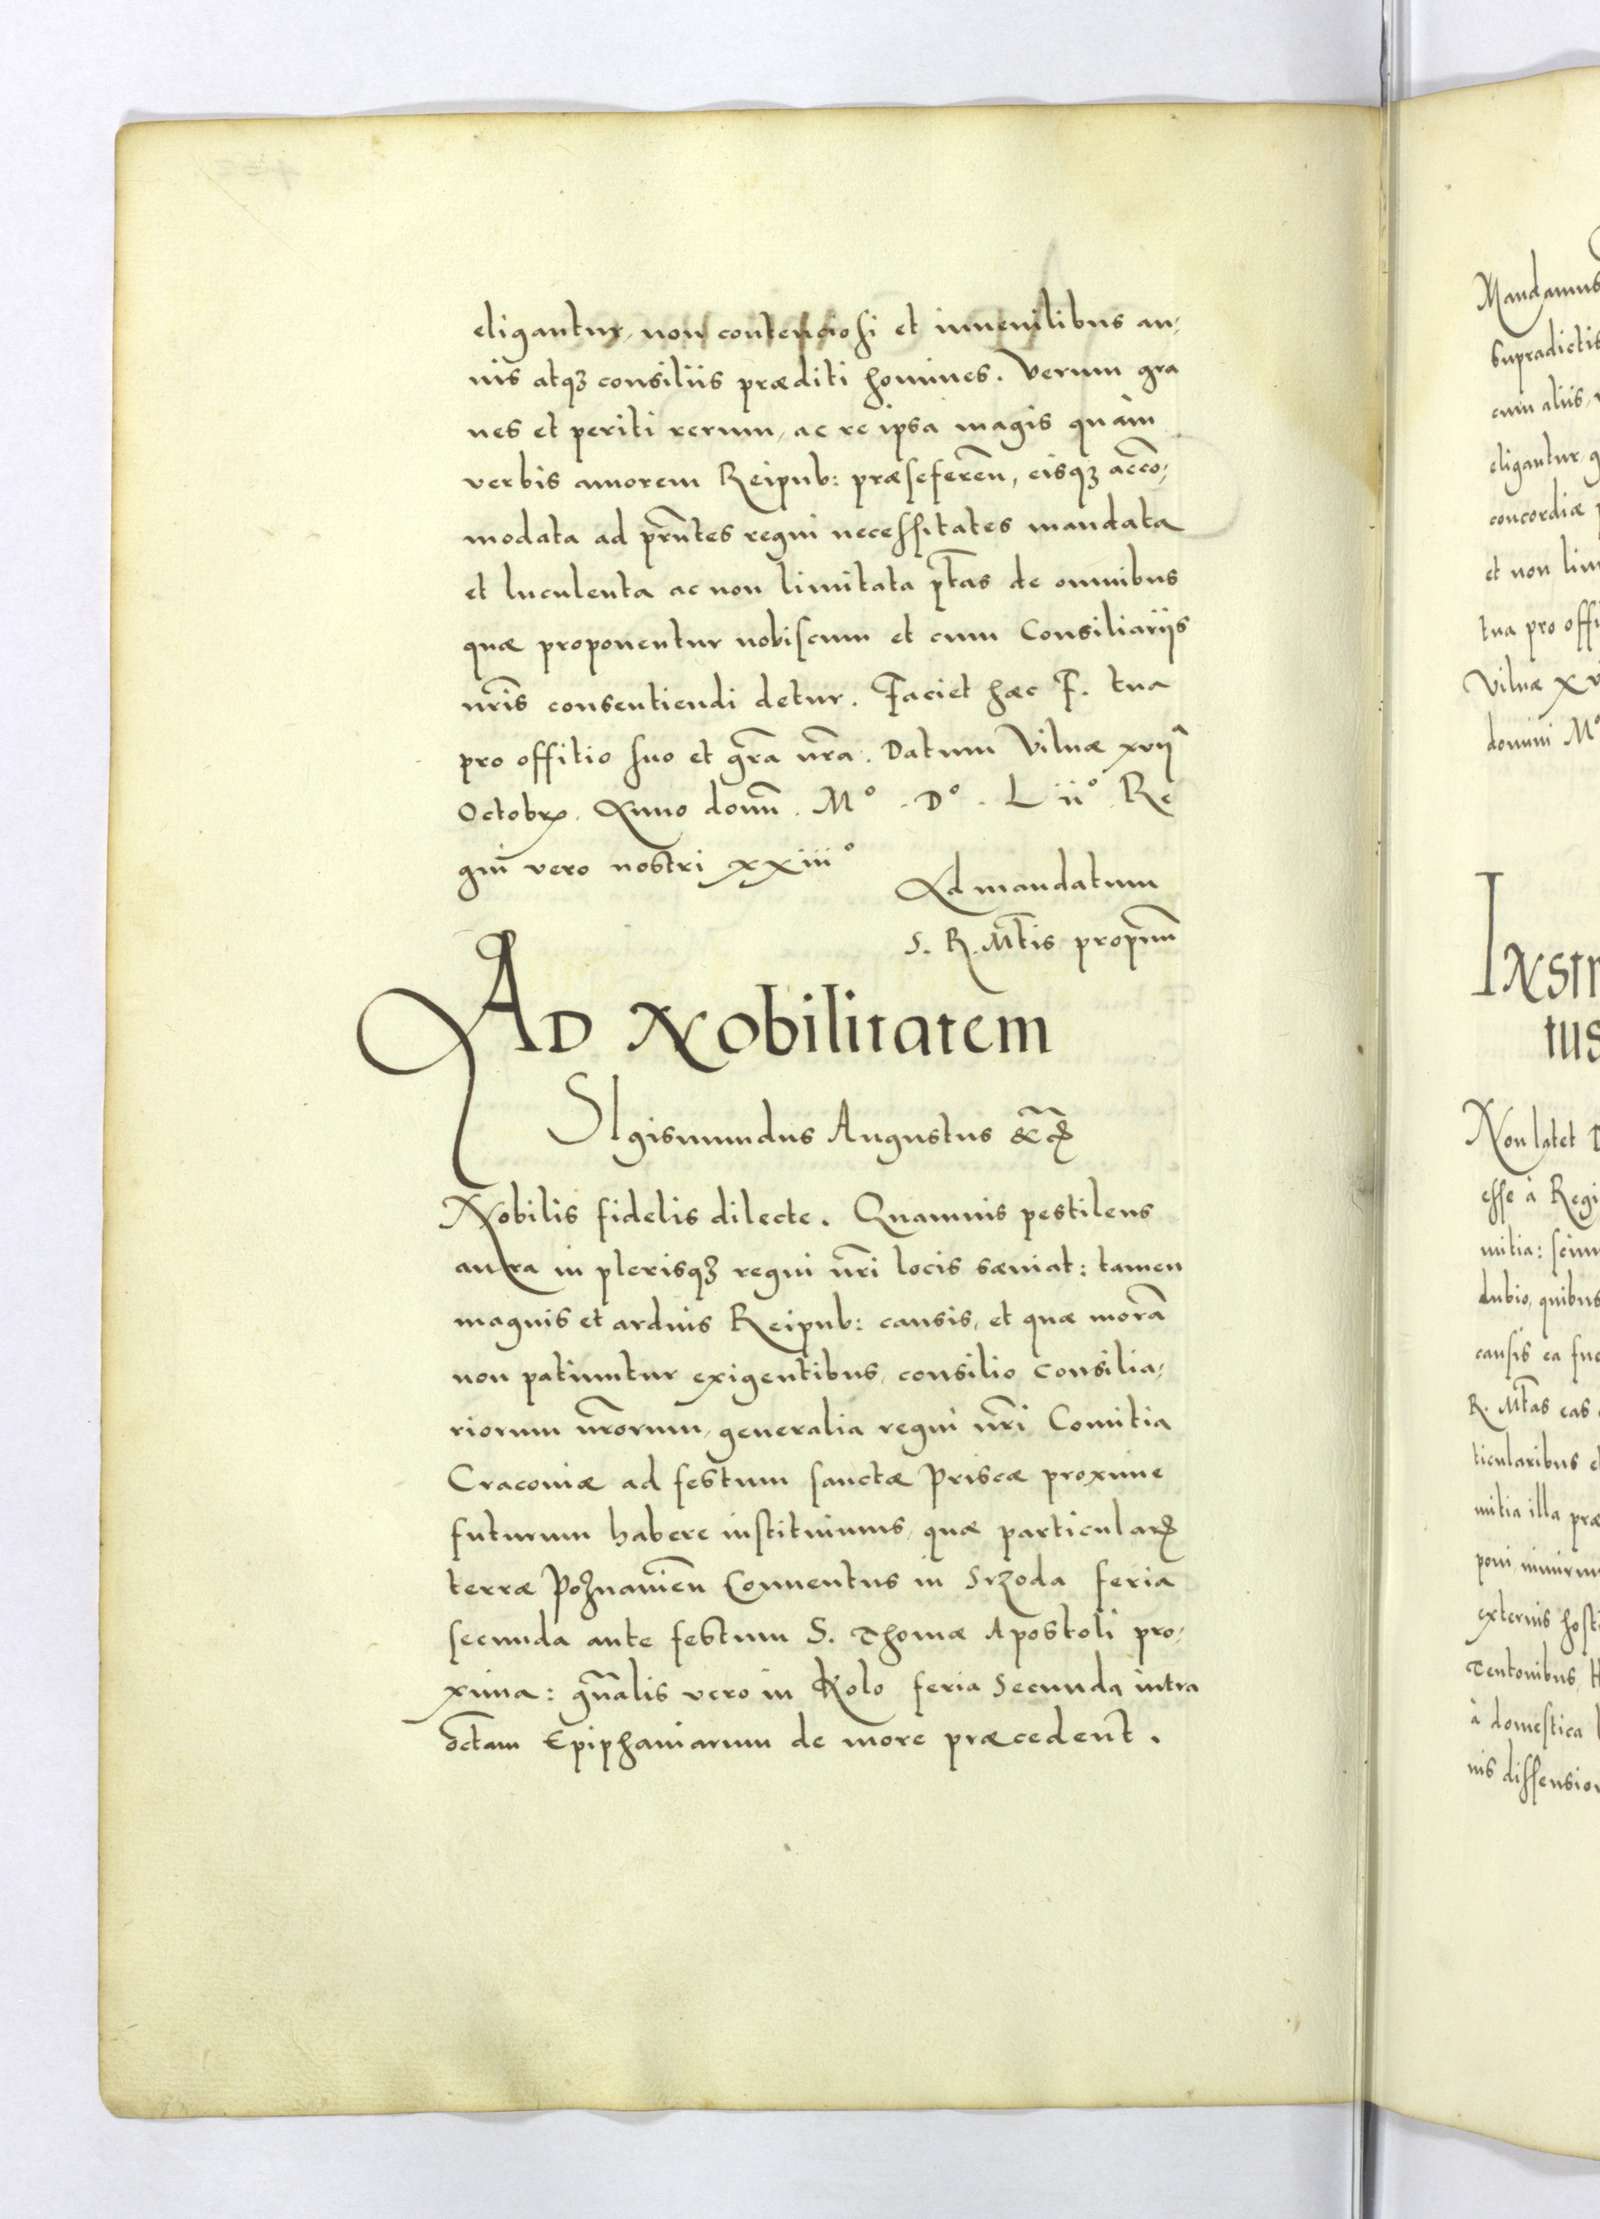 eligantur, non contenciosi et iuuenilibus an-
nis atqꝫ consiliis præditi homines. Verum gra
ues et periti rerum, ac re ipsa magis quàm
verbis amorem Reipub: præseferen̄, eisqꝫ acco-
modata ad prn̄tes regni necessitates mandata
et luculenta ac non limitata ptas̄ de omnibus
quæ proponentur nobiscum et cum Consiliariis
nr̄is consentiendi detur. Faciet hæc F. tua
pro offitio suo et gr̄a nr̄a. Datum Vilnæ xvii
Octobr. Anno domn̄. M° . D° . L ii° . Re
gni vero nostri xxiii°
Ad mandatum
S. R. Mt̄is proprium̄
AD Nobilitatem
SIgismundus Augustus &c̄
Nobilis fidelis dilecte. Quamuis pestilens
aura in plerisqꝫ regni nr̄i locis sæuiat: tamen
magnis et arduis Reipub: causis, et quæ morā
non patiuntur exigentibus, consilio consilia-
riorum nr̄orum, generalia regni nr̄i Comitia
Cracouiæ ad festum sanctæ Priscæ proxime
futurum habere instituimus, quæ particularꝭ
terræ Poznanien̄ Conuentus in Srzoda feria
secunda ante festum S. Thomæ Apostoli pro-
xima: gn̄alis vero in Kolo feria secunda intra
oct̄am Epiphaniarum de more præcedent̄.
Mandamus
supradictis
cum aliis,
eligantur,
concordiæ
et non lim
tua pro offi
Vilnæ xv
domini M°
INSTR
tus
Non latet
esse à Regi
mitia:
dubio, quibus
causis ea fue
R. Mt̄as eas
ticularibus
mitia illa præ
poni nimirum
externis hosti
Teutonibus,
à domestica
nis dissension